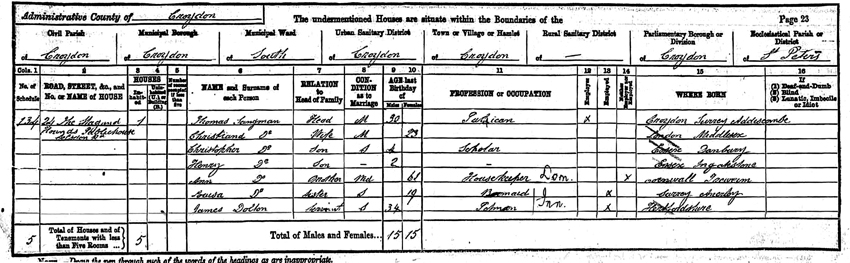 Administrative County of Croydon The undermentioned Houses are situate within the Boundaries of the Page 23
Civil Parish Municipal Borough Municipal Ward Urban Sanitary District Town or Village or Hamlet Rural Sanitary District Parliamentary Borough or Division Ecclesiastical Parish or District
of Croydon of Croydon of South of Croydon of Croydon of — of Croydon of St Peters
Cols. 1 2 3 4 5 6 7 8 9 10 11 12 13 14 15 16
No. of Schedule ROAD, STREET, &c., and No. or NAME of HOUSE HOUSES Inhabited NAME and Surname of each Person RELATION to Head of Family CONDITION as to Marriage AGE last Birthday of Males Females PROFESSION or OCCUPATION Employer Employed WHERE BORN (1) Deaf-and-Dumb (2) Blind (3) Lunatic, Imbecile or Idiot
134 24 The 1 Thomas Langman Head M 30 Publican X Croydon Surrey Addiscombe
Do Wife M 23 London Middlesex
Christopher Do Son S 4 Scholar Essex Danbury
Henry Do Son – 2 – Essex Ingatestone
Ann Do Mother Wd 61 Housekeeper Dom X Cornwall
Louisa Do Sister S 19 Barmaid Inn X Surrey Anerley
James Dolton Servant S 34 Potman X Hertfordshire
5 Total of Houses and of Tenements with less than Five Rooms 5 Total of Males and Females... 15 15
NOTE.—Draw the pen through such of the words of the headings as are inappropriate.